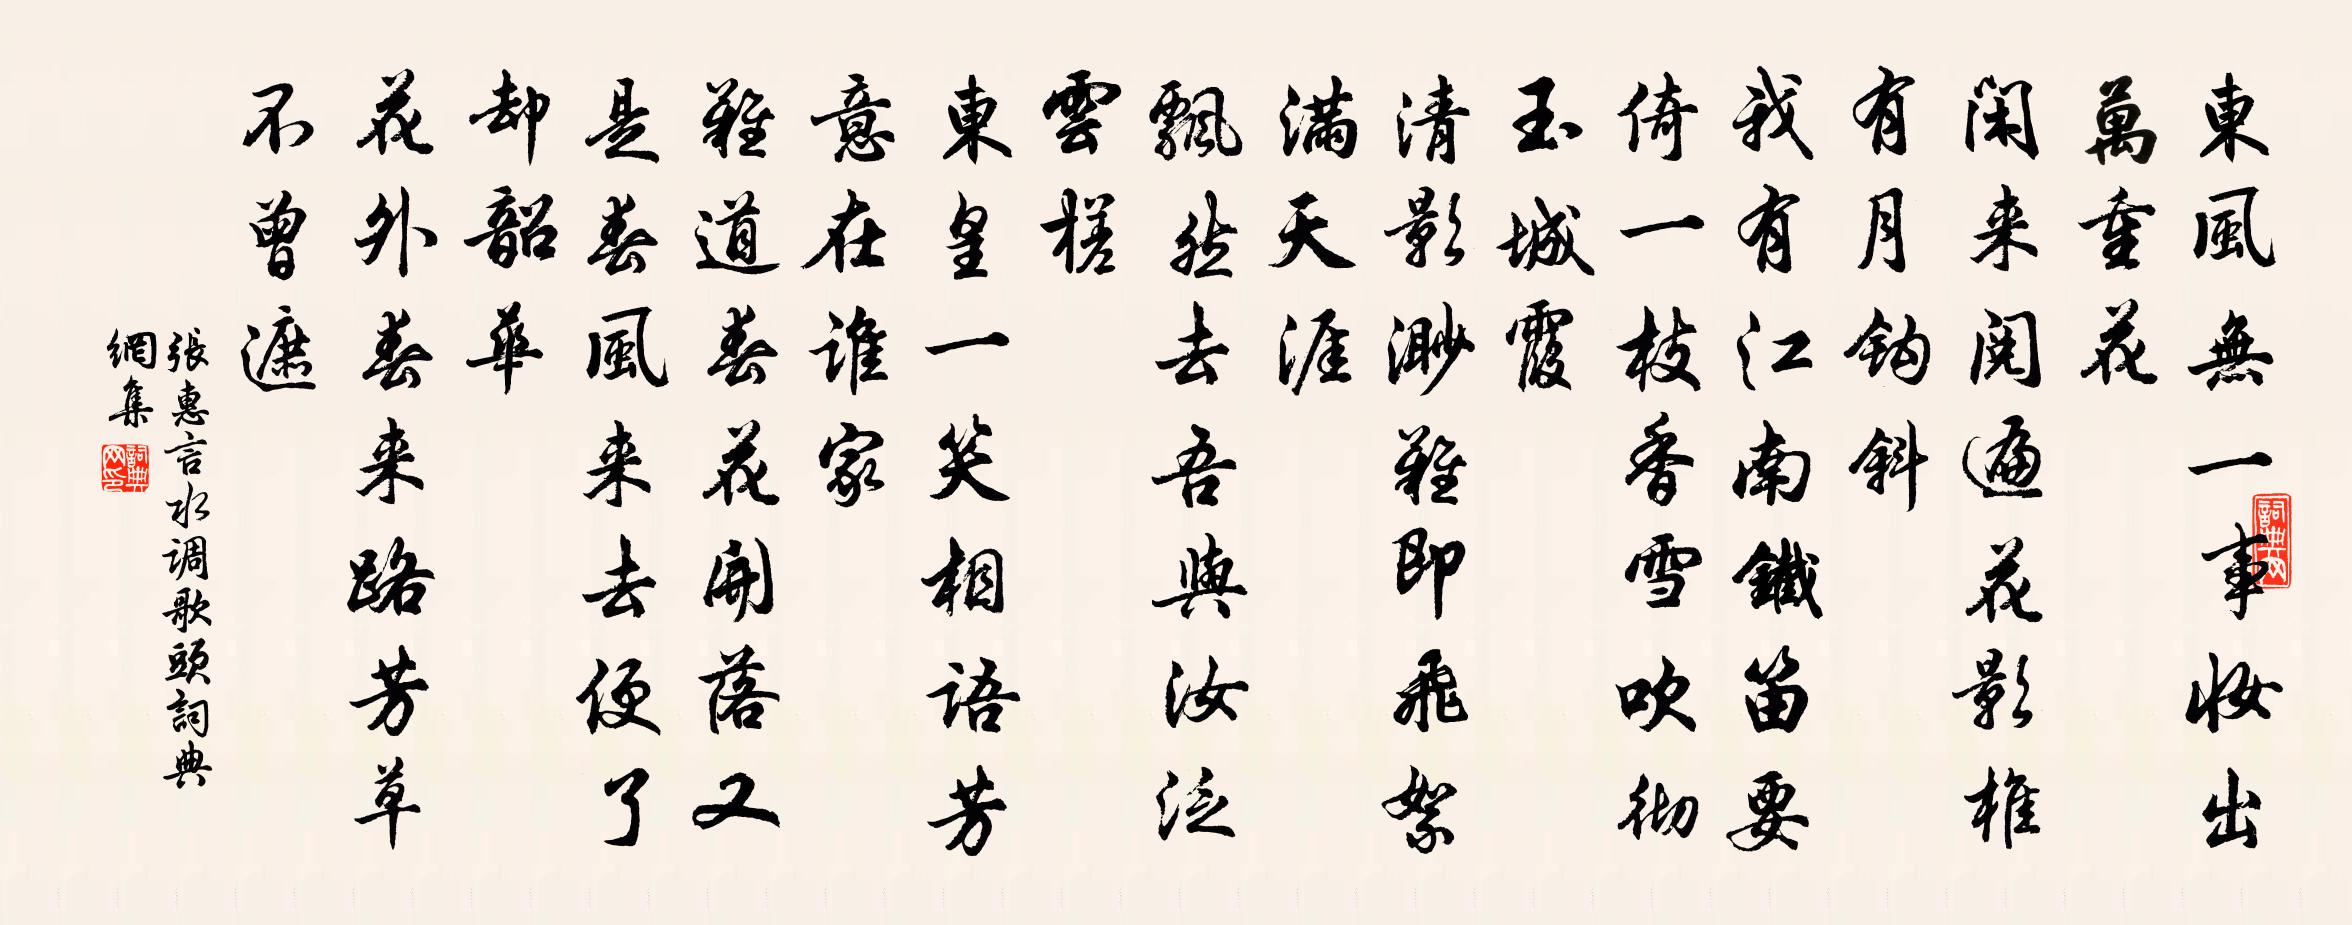 東風無一事妝出
萬重花
閑来閱遍花影惟
有月鈎斜
我有江南鐵笛要
倚一枝香雪吹彻
玉城霞
清影渺難即飛絮
満天涯
飄然去吾與汝泛
雲槎
東皇一笑相語芳
意在誰家
難道春花開落又
是春風来去便了
却韶華
花外春来路芳草
不曾遮
張惠言水调歌頭詞典
網集
詞典網
詞典網印